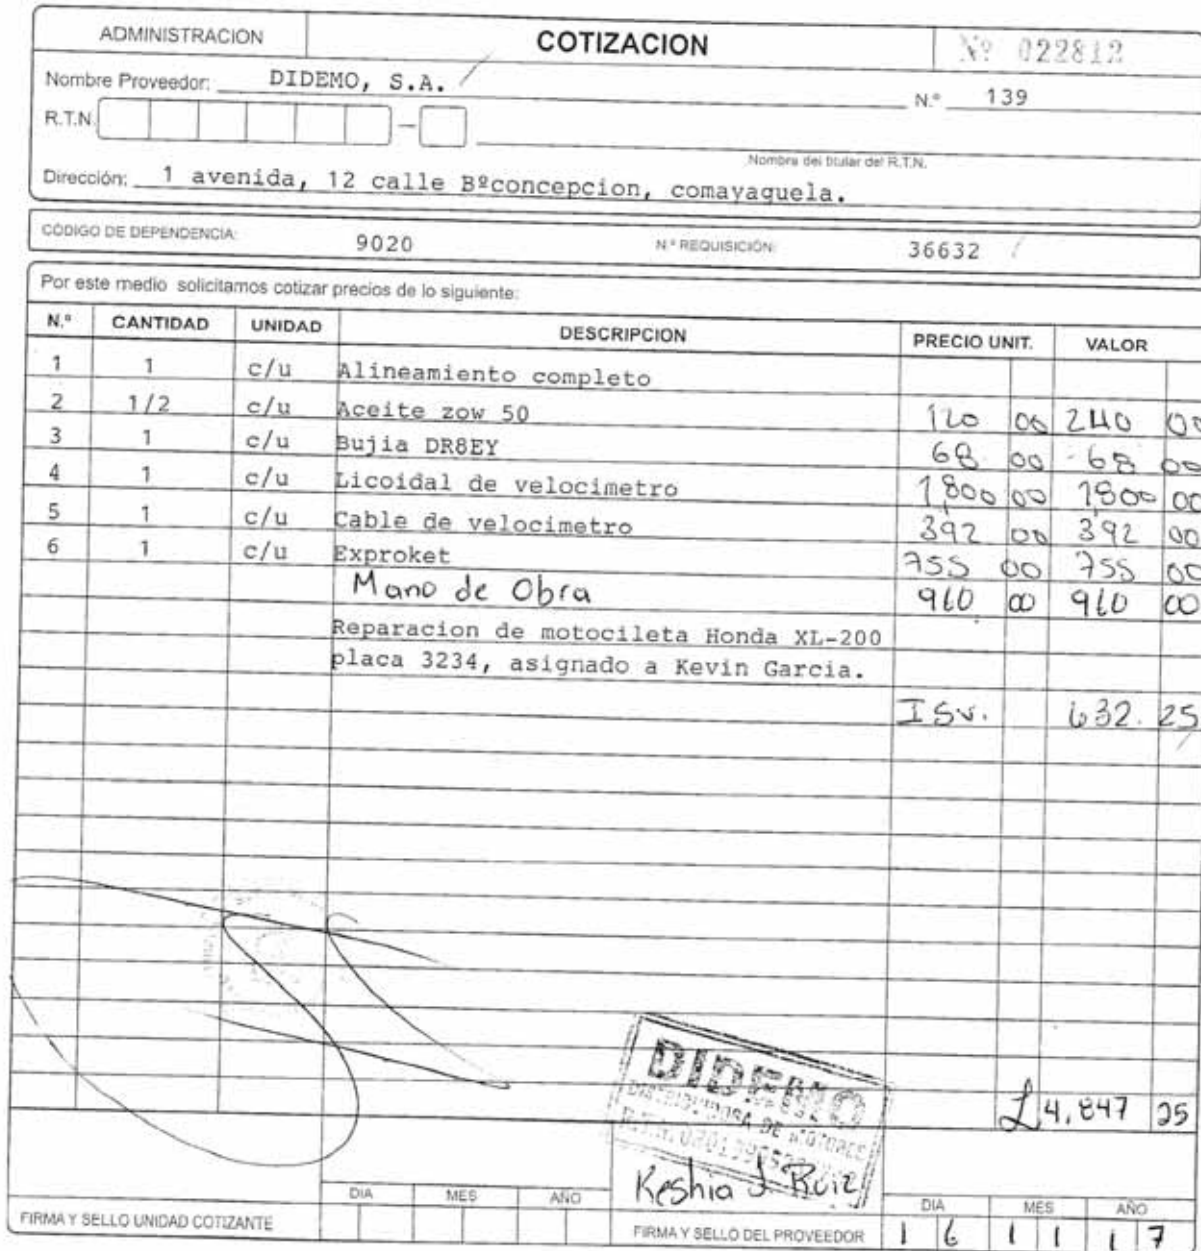 ADMINISTRACION COTIZACION Nº 022812
Nombre Proveedor: DIDEMO, S.A. N.º 139
R.T.N. –
Nombre del titular del R.T.N.
Dirección: 1 avenida, 12 calle Bºconcepcion, comayaquela.
CÓDIGO DE DEPENDENCIA: 9020 N.º REQUISICIÓN: 36632
Por este medio solicitamos cotizar precios de lo siguiente:
N.º CANTIDAD UNIDAD DESCRIPCION PRECIO UNIT. VALOR
1 1 c/u Alineamiento completo
2 1/2 c/u Aceite zow 50 120 00 240 00
3 1 c/u Bujia DR8EY 68 00 68 00
4 1 c/u Licoidal de velocimetro 1,800 00 1,800 00
5 1 c/u Cable de velocimetro 392 00 392 00
6 1 c/u Exproket 755 00 755 00
Mano de Obra 960 00 960 00
Reparacion de motocileta Honda XL-200
placa 3234, asignado a Kevin Garcia.
ISv. 632. 25
DIDEMO
DISTRIBUIDORA DE MOTORES
L 4,847 25
Keshia J. Ruiz
DIA MES AÑO DIA MES AÑO
FIRMA Y SELLO UNIDAD COTIZANTE FIRMA Y SELLO DEL PROVEEDOR 1 6 1 1 1 7